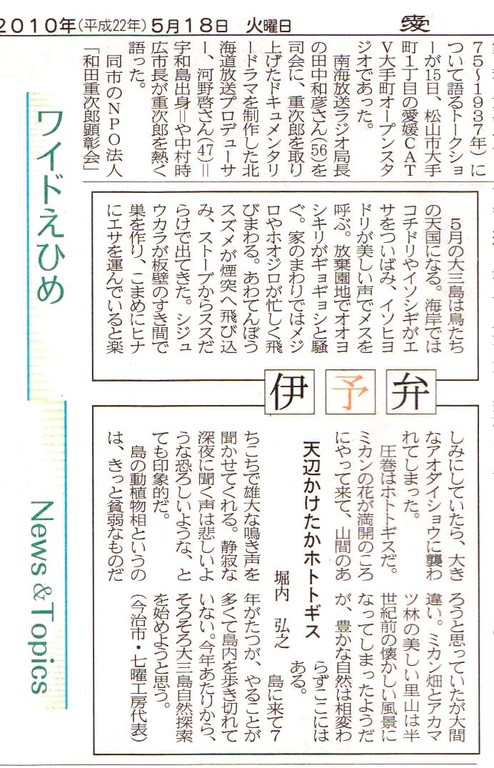 2010年(平成22年)5月18日 火曜日 愛
75〜1937年)に
ついて語るトークショ
ーが15日、松山市大手
町1丁目の愛媛CAT
V大手町オープンスタ
ジオであった。
南海放送ラジオ局長
の田中和彦さん(56)を
司会に、重次郎を取り
上げたドキュメンタリ
ードラマを制作した北
海道放送プロデューサ
ー、河野啓さん(47)=
宇和島出身=や中村時
広市長が重次郎を熱く
語った。
同市のNPO法人
「和田重次郎顕彰会」
ワイドえひめ
News&Topics
伊予弁
天辺かけたかホトトギス
堀内 弘之
5月の大三島は鳥たち
の天国になる。海岸では
コチドリやイソシギがエ
サをついばみ、イソヒヨ
ドリが美しい声でメスを
呼ぶ。放棄園地でオオヨ
シキリがギョギョシと騒
ぐ。家のまわりではメジ
ロやホオジロが忙しく飛
びまわる。あわてんぼう
スズメが煙突へ飛び込
み、ストーブからススだ
らけで出てきた。シジュ
ウカラが板壁のすき間で
巣を作り、こまめにヒナ
にエサを運んでいると楽
しみにしていたら、大き
なアオダイショウに襲わ
れてしまった。
圧巻はホトトギスだ。
ミカンの花が満開のころ
にやって来て、山間のあ
ちこちで雄大な鳴き声を
聞かせてくれる。静寂な
深夜に聞く声は悲しいよ
うな恐ろしいような、と
ても印象的だ。
島の動植物相というの
は、きっと貧弱なものだ
ろうと思っていたが大間
違い。ミカン畑とアカマ
ツ林の美しい里山は半
世紀前の懐かしい風景に
なってしまったようだ
が、豊かな自然は相変わ
らずここには
ある。
島に来て7
年がたつが、やることが
多くて島内を歩き切れて
いない。今年あたりから、
そろそろ大三島自然探索
を始めようと思う。
(今治市・七曜工房代表)